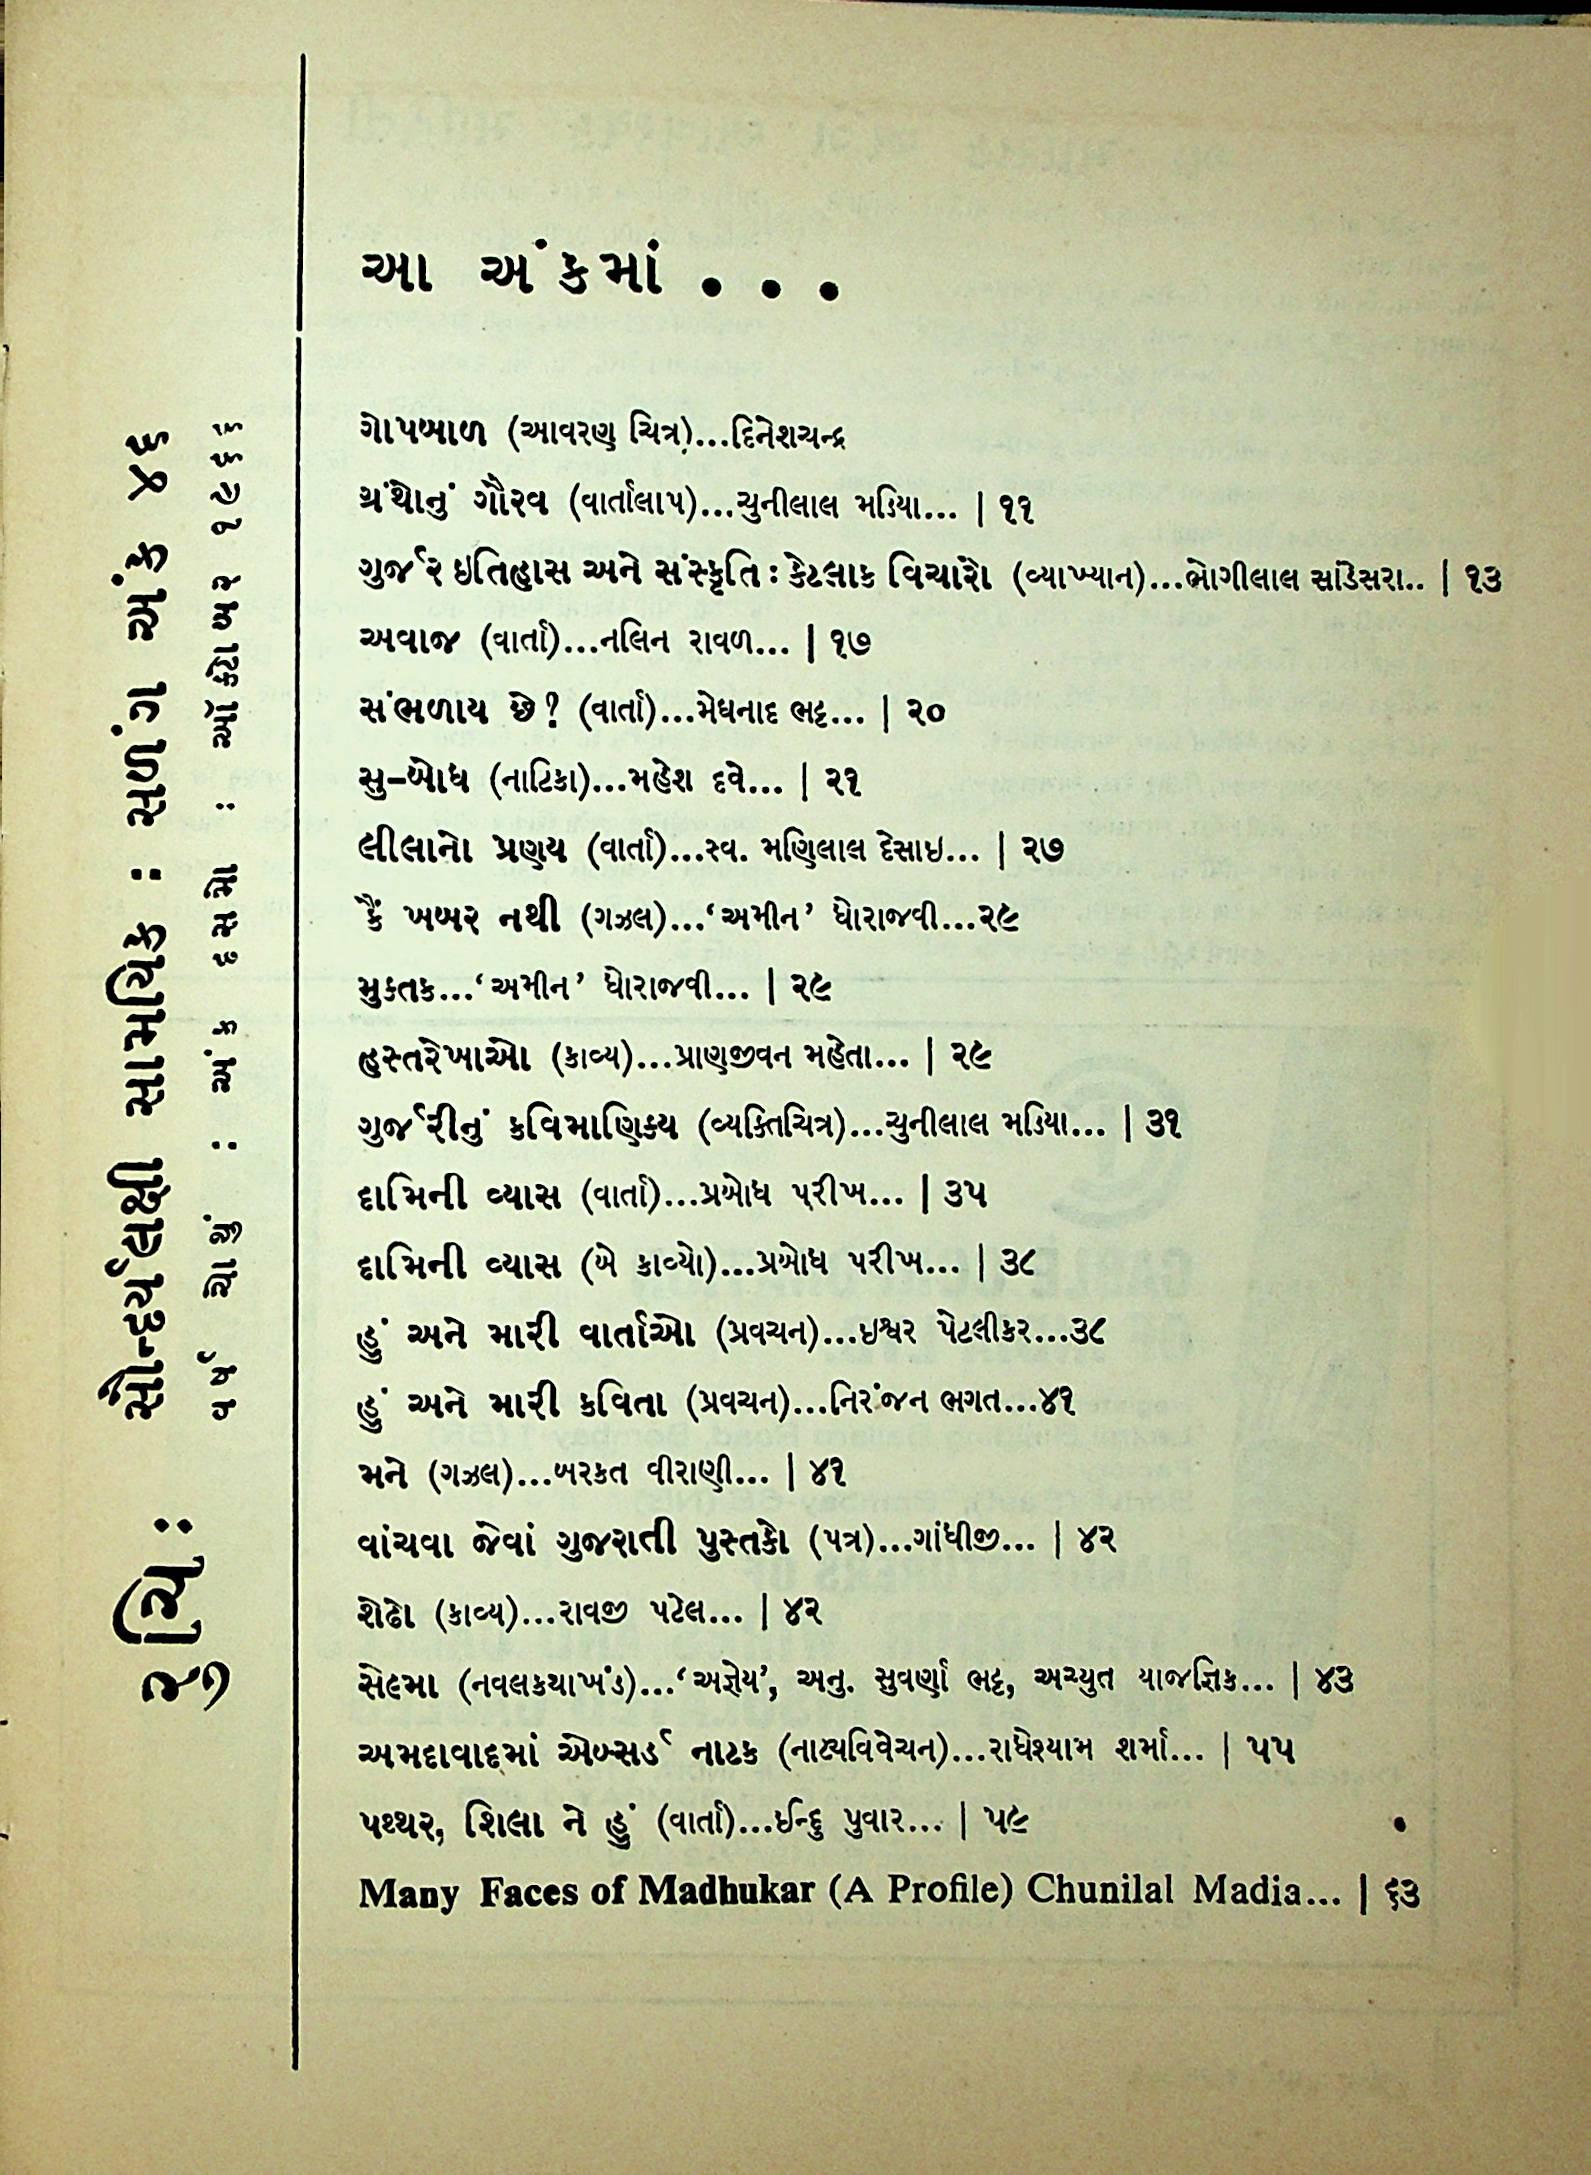 રુચિ : સૌન્દર્યલક્ષી સામયિક : સળંગ અંક ૪૬
વર્ષ ચોથું : અંક દસમો : ઑક્ટોબર ૧૯૬૬
આ અંકમાં . . .
ગોપબાળ (આવરણ ચિત્ર)...દિનેશચન્દ્ર
ગ્રંથોનું ગૌરવ (વાર્તાલાપ)...ચુનીલાલ મડિયા... | ૧૧
ગુર્જર ઇતિહાસ અને સંસ્કૃતિ : કેટલાક વિચારો (વ્યાખ્યાન)...ભોગીલાલ સાંડેસરા.. | ૧૩
અવાજ (વાર્તા)...નલિન રાવળ... | ૧૭
સંભળાય છે? (વાર્તા)...મેઘનાદ ભટ્ટ... | ૨૦
સુ–બોધ (નાટિકા)...મહેશ દવે... | ૨૧
લીલાનો પ્રણય (વાર્તા)...સ્વ. મણિલાલ દેસાઇ... | ૨૭
કૈં ખબર નથી (ગઝલ)...‘અમીન’ ધોરાજવી...૨૯
મુક્તક...‘અમીન’ ધોરાજવી... | ૨૯
હસ્તરેખાઓ (કાવ્ય)...પ્રાણજીવન મહેતા... | ૨૯
ગુર્જરીનું કવિમાણિક્ય (વ્યક્તિચિત્ર)...ચુનીલાલ મડિયા... | ૩૧
દામિની વ્યાસ (વાર્તા)...પ્રબોધ પરીખ... | ૩૫
દામિની વ્યાસ (બે કાવ્યો)...પ્રબોધ પરીખ... | ૩૮
હું અને મારી વાર્તાઓ (પ્રવચન)...ઇશ્વર પેટલીકર...૩૮
હું અને મારી કવિતા (પ્રવચન)...નિરંજન ભગત...૪૧
મને (ગઝલ)...બરકત વીરાણી... | ૪૧
વાંચવા જેવાં ગુજરાતી પુસ્તકો (પત્ર)...ગાંધીજી... | ૪૨
શેઢો (કાવ્ય)...રાવજી પટેલ... | ૪૨
સેલ્મા (નવલકથાખંડ)...‘અજ્ઞેય’, અનુ. સુવર્ણા ભટ્ટ, અચ્યુત યાજ્ઞિક... | ૪૩
અમદાવાદમાં ઍબ્સર્ડ નાટક (નાટ્યવિવેચન)...રાધેશ્યામ શર્મા... | ૫૫
પથ્થર, શિલા ને હું (વાર્તા)...ઈન્દુ પુવાર... | ૫૯
Many Faces of Madhukar (A Profile) Chunilal Madia... | ૬૩